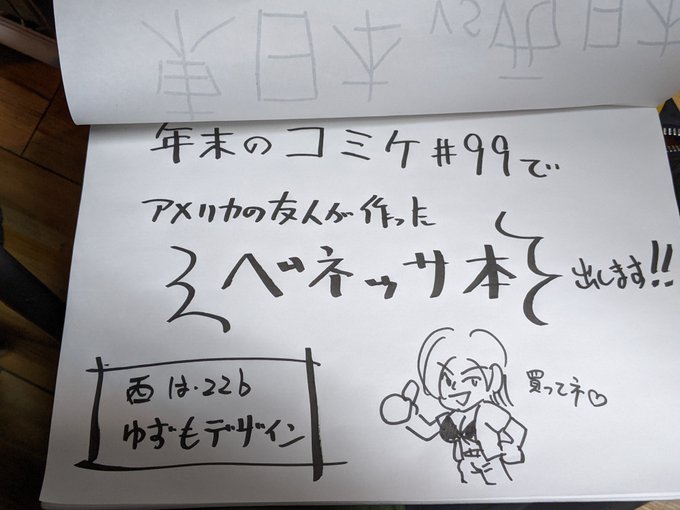 東日本 vs 西日本
年末のコミケ#99で
アメリカの友人が作った
ベネッサ本
出します!!
西 は・22b
ゆずもデザイン
買ってネ♡